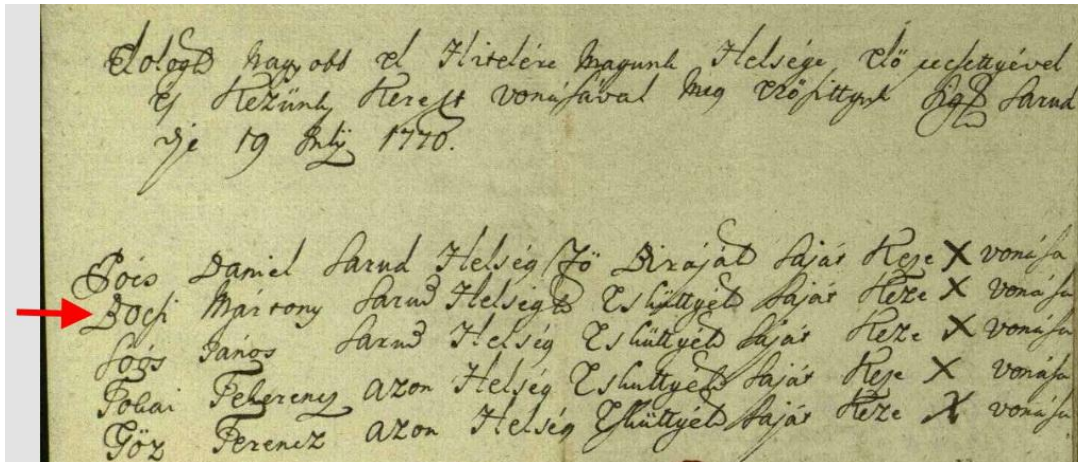 Dologk Nagyobb el Hitelére magunk Helsége Elő pecsettyével
Es Kezünk Kereszt vonásával meg Erőssittyük Sarud
die 19 July 1770.
Pócs Daniel Sarud Helség Fő Birájak saját Keze X vonása
Bocsi Mártony Sarud Helségk Eskuttyék Saját Keze X vonása
Soós János Sarud Helség Eskuttyék Saját Keze X vonása
Ferencz azon Helség Eskuttyék Saját Keze X vonása
Göz Ferencz azon Helség Eskuttyék Saját Keze X vonása